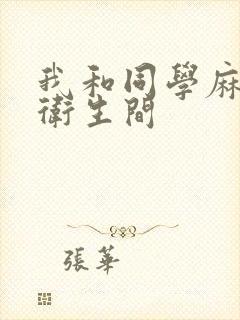 我和同學麻
衛生間
張華